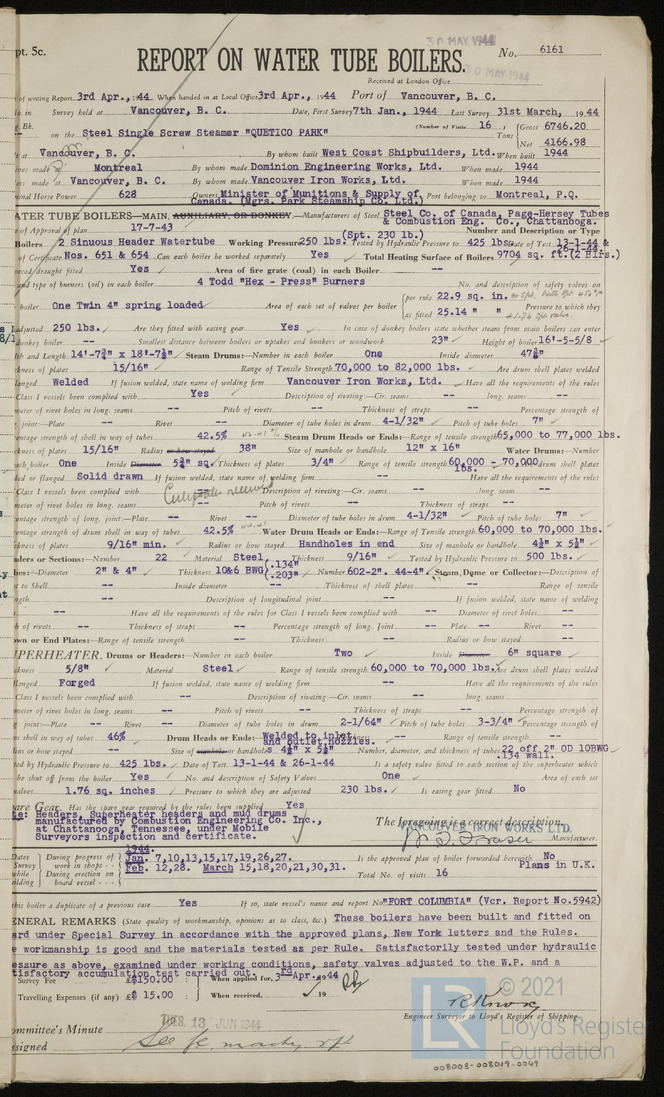 pt. 5c.
30 MAY 1944
REPORT ON WATER TUBE BOILERS.
No. 6161
Received at London Office 30 MAY 1944
of writing Report 3rd Apr., 1944 When handed in at Local Office 3rd Apr., 1944 Port of Vancouver, B. C.
Survey held at Vancouver, B. C. Date, First Survey 7th Jan., 1944 Last Survey 31st March, 1944
(Number of Visits 16)
on the Steel Single Screw Steamer "QUETICO PARK" Tons { Gross 6746.20
Net 4166.98
at Vancouver, B. C. By whom built West Coast Shipbuilders, Ltd. When built 1944
made at Montreal By whom made Dominion Engineering Works, Ltd. When made 1944
made at Vancouver, B. C. By whom made Vancouver Iron Works, Ltd. When made 1944
Horse Power 628 Owners Minister of Munitions & Supply of Canada. (Mgrs. Park Steamship Co. Ltd.) Port belonging to Montreal, P.Q.
ATER TUBE BOILERS—MAIN, AUXILIARY, OR DONKEY.—Manufacturers of Steel Steel Co. of Canada, Page-Hersey Tubes & Combustion Eng. Co., Chattanooga.
of Approval of plan 17-7-43 Number and Description or Type
(Spt. 230 lb.)
Boilers 2 Sinuous Header Watertube Working Pressure 250 lbs. Tested by Hydraulic Pressure to 425 lbs. Date of Test 13-1-44 & 26-1-44.
of Certificate Nos. 651 & 654 Can each boiler be worked separately Yes Total Heating Surface of Boilers 9704 sq. ft. (2 Blrs.)
forced draught fitted Yes Area of fire grate (coal) in each Boiler --
and type of burners (oil) in each boiler 4 Todd "Hex - Press" Burners No. and description of safety valves on
boiler One Twin 4" spring loaded Area of each set of valves per boiler { per rule 22.9 sq. in.
as fitted 25.14 " " Pressure to which they
adjusted 250 lbs. Are they fitted with easing gear Yes In case of donkey boilers state whether steam from main boilers can enter
donkey boiler -- Smallest distance between boilers or uptakes and bunkers or woodwork 23" Height of boiler 16'-5-5/8
th and Length 14'-7¾" x 18'-7½" Steam Drums:—Number in each boiler One Inside diameter 47¾"
kness of plates 15/16" Range of Tensile Strength 70,000 to 82,000 lbs. Are drum shell plates welded
langed Welded If fusion welded, state name of welding firm Vancouver Iron Works, Ltd. Have all the requirements of the rules
Class I vessels been complied with Yes Description of riveting:—Cir. seams -- long. seams --
meter of rivet holes in long. seams -- Pitch of rivets -- Thickness of straps -- Percentage strength of
joint:—Plate -- Rivet -- Diameter of tube holes in drum 4-1/32" Pitch of tube holes 7"
entage strength of shell in way of tubes 42.5% Steam Drum Heads or Ends:—Range of tensile strength 65,000 to 77,000 lbs.
kness of plates 15/16" Radius or how stayed 38" Size of manhole or handhole 12" x 16" Water Drums:—Number
each boiler One Inside Diameter 5¾" sq. Thickness of plates 3/4" Range of tensile strength 60,000 - 70,000 lbs. drum shell plates
ed or flanged Solid drawn If fusion welded, state name of welding firm -- Have all the requirements of the rules
Class I vessels been complied with Description of riveting:—Cir. seams -- long. seam --
meter of rivet holes in long. seams -- Pitch of rivets -- Thickness of straps --
entage strength of long. joint:—Plate -- Rivet -- Diameter of tube holes in drum 4-1/32" Pitch of tube holes 7"
entage strength of drum shell in way of tubes 42.5% Water Drum Heads or Ends:—Range of Tensile strength 60,000 to 70,000 lbs.
kness of plates 9/16" min. Radius or how stayed Handholes in end Size of manhole or handhole 4½" x 5½"
aders or Sections:—Number 22 Material Steel Thickness 9/16" Tested by Hydraulic Pressure to 500 lbs.
bes:—Diameter 2" & 4" Thickness 10&6 BWG (.134" .203" Number 602-2". 44-4". Steam Dome or Collector:—Description of
t to Shell -- Inside diameter -- Thickness of shell plates -- Range of tensile
ngth -- Description of longitudinal joint -- If fusion welded, state name of welding
-- Have all the requirements of the rules for Class I vessels been complied with -- Diameter of rivet holes --
h of rivets -- Thickness of straps -- Percentage strength of long. Joint -- Plate -- Rivet --
own or End Plates:—Range of tensile strength -- Thickness -- Radius or how stayed --
UPERHEATER. Drums or Headers:—Number in each boiler Two Inside Diameter 6" square
kness 5/8" Material Steel Range of tensile strength 60,000 to 70,000 lbs. Are drum shell plates welded
flanged Forged If fusion welded, state name of welding firm -- Have all the requirements of the rules
Class I vessels been complied with -- Description of riveting:—Cir. seams -- long. seams --
meter of rivet holes in long. seams -- Pitch of rivets -- Thickness of straps -- Percentage strength of
joint:—Plate -- Rivet -- Diameter of tube holes in drum 2-1/64" Pitch of tube holes 3-3/4" Percentage strength of
shell in way of tubes 46% Drum Heads or Ends: Welded to inlet and outlet nozzles. Range of tensile strength --
ius or how stayed -- Size of manhole or handholes 4½" x 5½" Number, diameter, and thickness of tubes 22 off 2" OD 10BWG .134 wall.
ted by Hydraulic Pressure to 425 lbs. Date of Test 13-1-44 & 26-1-44 Is a safety valve fitted to each section of the superheater which
be shut off from the boiler Yes No. and description of Safety Valves One Area of each set
valves 1.76 sq. inches Pressure to which they are adjusted 230 lbs. Is easing gear fitted No
are Gear. Has the spare gear required by the rules been supplied Yes
te: Headers, Superheater headers and mud drums
manufactured by Combustion Engineering Co. Inc.,
at Chattanooga, Tennessee, under Mobile
Surveyors inspection and certificate.
The foregoing is a correct description.
VANCOUVER IRON WORKS LTD.
Manufacturer.
1944.
Dates Survey while building { During progress of work in shops - - Jan. 7,10,13,15,17,19,26,27.
During erection on board vessel - - - Feb. 12,28. March 15,18,20,21,30,31.
Is the approved plan of boiler forwarded herewith No
Plans in U.K.
Total No. of visits 16
this boiler a duplicate of a previous case Yes If so, state vessel's name and report No. "FORT COLUMBIA" (Vcr. Report No.5942)
ENERAL REMARKS (State quality of workmanship, opinions as to class, &c.) These boilers have been built and fitted on
ard under Special Survey in accordance with the approved plans, New York letters and the Rules.
e workmanship is good and the materials tested as per Rule. Satisfactorily tested under hydraulic
essure as above, examined under working conditions, safety valves adjusted to the W.P. and a
tisfactory accumulation test carried out.
Survey Fee £$150.00 : When applied for, 3rd Apr., 1944
Travelling Expenses (if any) £$ 15.00 : When received, 19
Engineer Surveyor to Lloyd's Register of Shipping.
ommittee's Minute TUES. 13 JUN 1944
ssigned See
© 2021
LR
Lloyd's Register
Foundation
008008-008019-0049